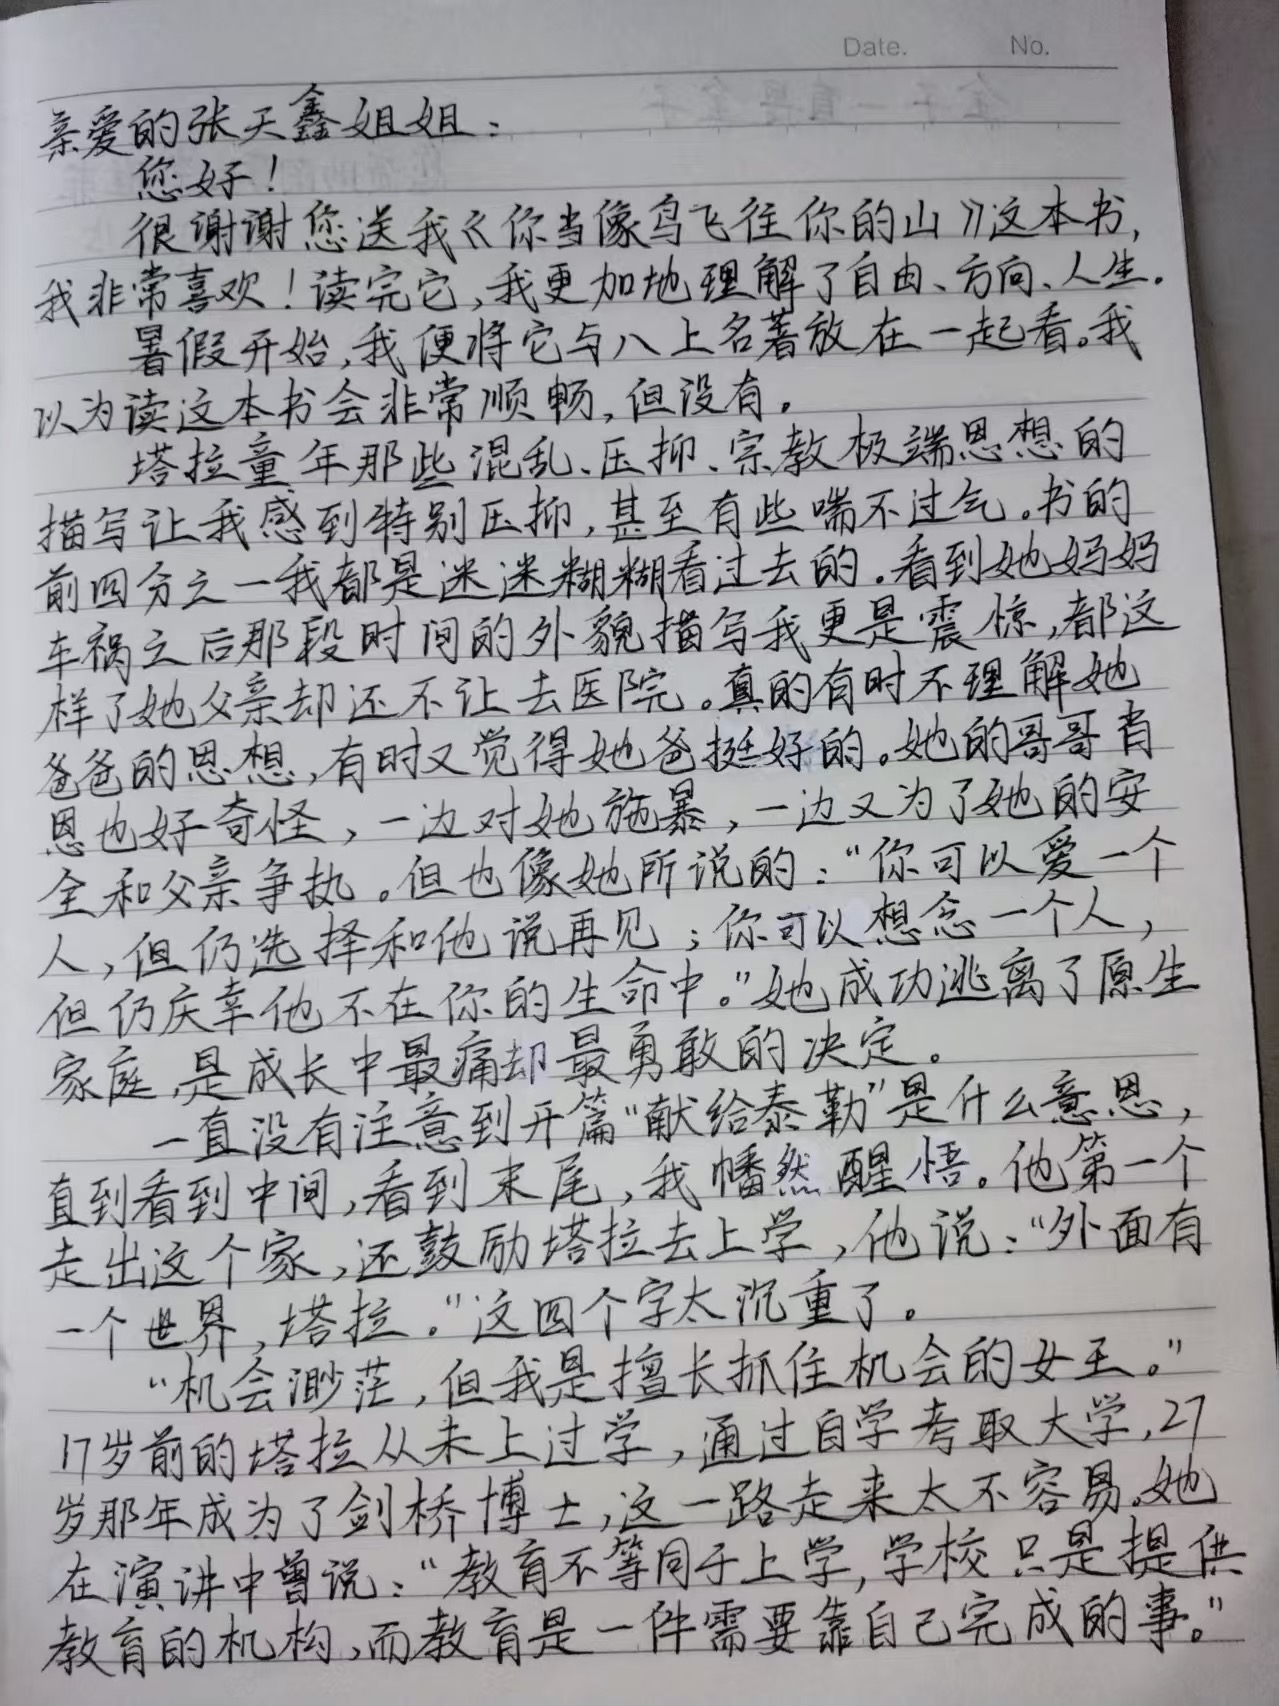 Date. No.
亲爱的张天鑫姐姐:
您好!
很谢谢您送我《你当像鸟飞往你的山》这本书,
我非常喜欢!读完它,我更加地理解了自由、方向、人生.
暑假开始,我便将它与八上名著放在一起看。我
以为读这本书会非常顺畅,但没有。
塔拉童年那些混乱、压抑、宗教极端思想的
描写让我感到特别压抑,甚至有些喘不过气。书的
前四分之一我都是迷迷糊糊看过去的。看到她妈妈
车祸之后那段时间的外貌描写我更是震惊,都这
样了她父亲却还不让去医院。真的有时不理解她
爸爸的思想,有时又觉得她爸挺好的。她的哥哥肖
恩也好奇怪,一边对她施暴,一边又为了她的安
全和父亲争执。但也像她所说的:“你可以爱一个
人,但仍选择和他说再见;你可以想念一个人,
但仍庆幸他不在你的生命中。”她成功逃离了原生
家庭,是成长中最痛却最勇敢的决定。
一直没有注意到开篇“献给泰勒”是什么意思,
直到看到中间,看到末尾,我幡然醒悟。他第一个
走出这个家,还鼓励塔拉去上学,他说:“外面有
一个世界,塔拉。”这四个字太沉重了。
“机会渺茫,但我是擅长抓住机会的女王。”
17岁前的塔拉从未上过学,通过自学考取大学,27
岁那年成为了剑桥博士,这一路走来太不容易。她
在演讲中曾说:“教育不等同于上学,学校只是提供
教育的机构,而教育是一件需要靠自己完成的事。”